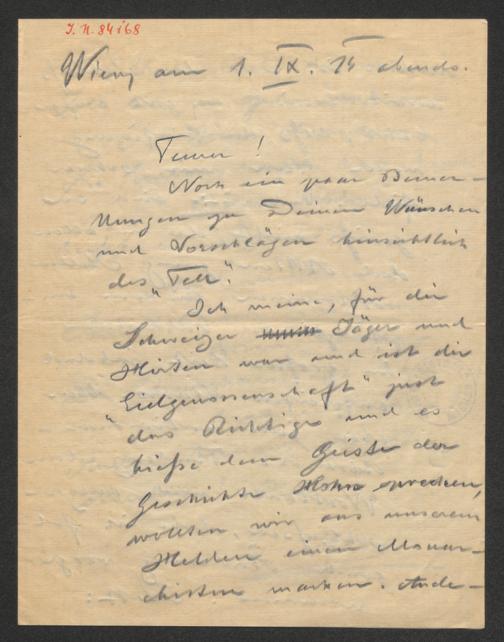 J. N. 84168
Wien, am 1. IX. 14 abends.
Teurer!
Noch ein paar Bemer-
kungen zu Deinen Wünschen
und Vorschlägen hinsichtlich
des "Tell".
Ich meine, für die
Schweizer Jäger und
Hirten war und ist die
"Eidgenossenschaft" just
das Richtige und es
hieße dem Geiste der
Geschichte Hohn sprechen,
wollten wir aus unserem
Helden einen Monar-
chisten machen. Ande-